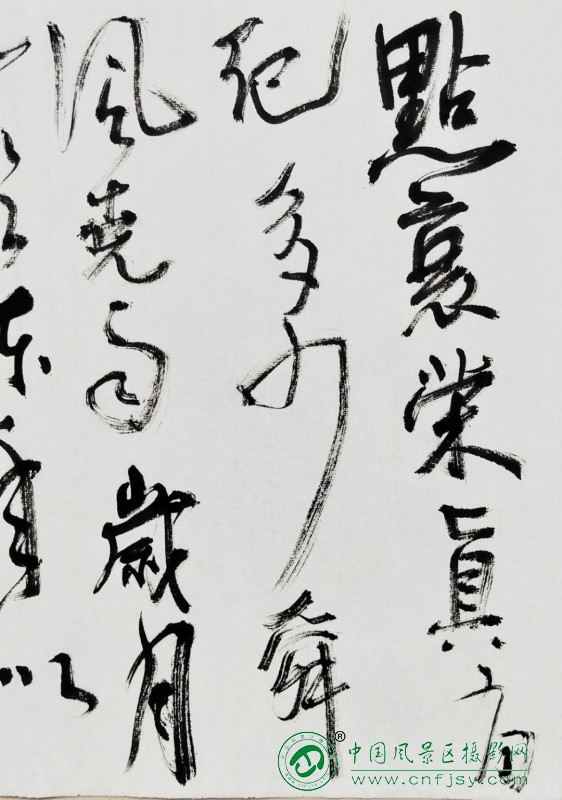 點衰榮真有
記多少舜
風堯雨歲月
以
® 中国风景区摄影网
www.cnfjsy.com